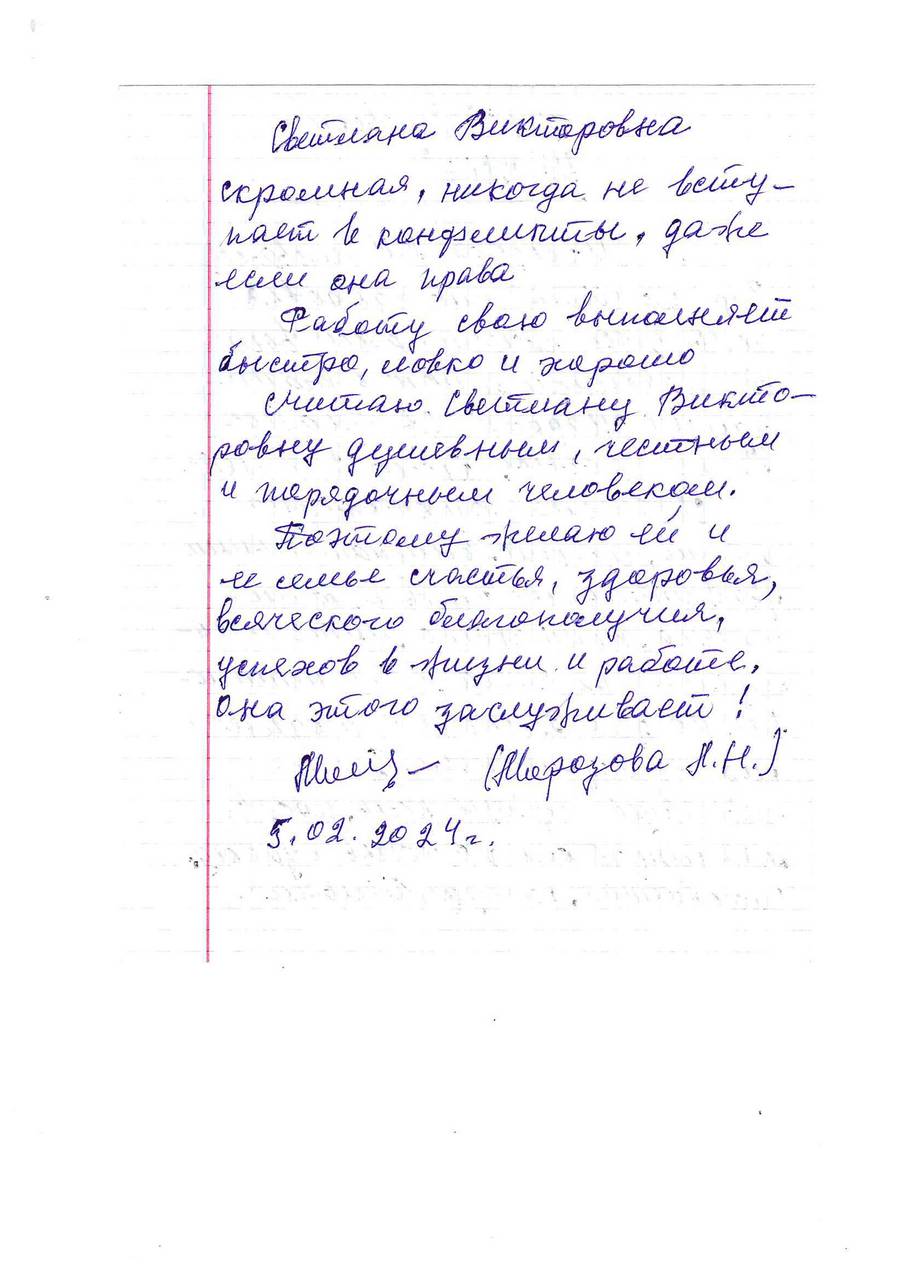 Светлана Викторовна
скромная, никогда не всту-
пает в конфликты, даже
если она права
Работу свою выполняет
быстро, ловко и хорошо
Считаю Светлану Викто-
ровну душевным, честным
и порядочным человеком.
Поэтому желаю ей и
ее семье счастья, здоровья,
всяческого благополучия,
успехов в жизни и работе,
она этого заслуживает!
(Морозова Л.Н.)
5.02.2024г.